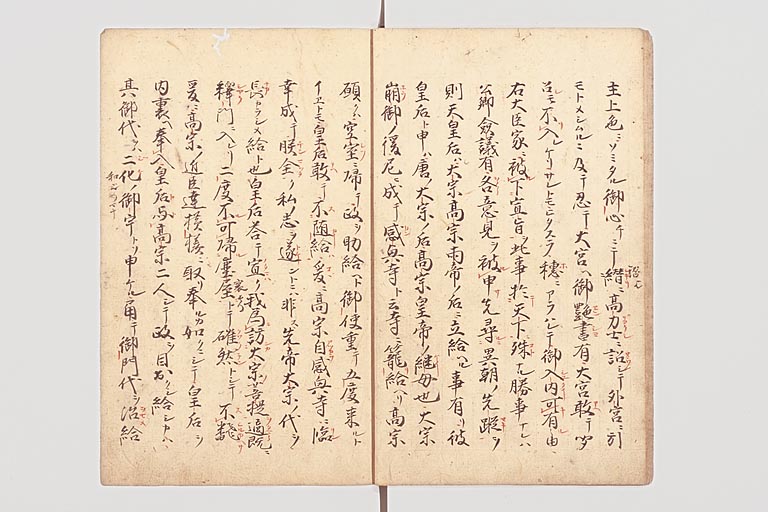 主上色ニソミタル御心ニテ繕ニ高力士ニ詔シテ外宮ニ引
モトメシムルニ及テ忍テ大宮ヘ御艶書有大宮敢テ聞
召モ不入ケリサレトモヒタスラ穂ニアラレテ御入内可有由
右大臣家ヘ被下宣旨此事於天下殊ナル勝事ナレハ
公卿僉議有各意見ヲ被申先尋異朝ノ先蹤ヲ
則天皇后ハ大宗高宗両帝ノ后ニ立給ヘル事有リ彼
皇后ト申ハ唐ノ大宗ノ后高宗皇帝ノ継母也大宗
崩御ノ後尼ニ成テ感興寺ト云寺ニ籠給ヘリ高宗
願クハ空室ニ帰テ政ヲ助給ヘト御使重テ五度来ルト
イヱトモ皇后敢テ不随給爰ニ高宗自感興寺ニ臨
幸成テ朕全ク私ノ志ヲ遂ントニハ非ス先帝大宗ノ代ヲ
長カラシメ給ト也皇后答テ宣ク我為訪大宗菩提適既ニ
釈門ニ入レリ二度不可帰塵屋トテ確然トシテ不翻
爰ニ高宗ノ近臣達横様ニ取リ奉ル如クニシテ皇后ヲ
内裏ヘ奉入皇后与高宗二人シテ政ヲ目出ク給シカハ
其御代ヲハ二化ノ御宇トソ申ケル角テ御門代ヲ治給